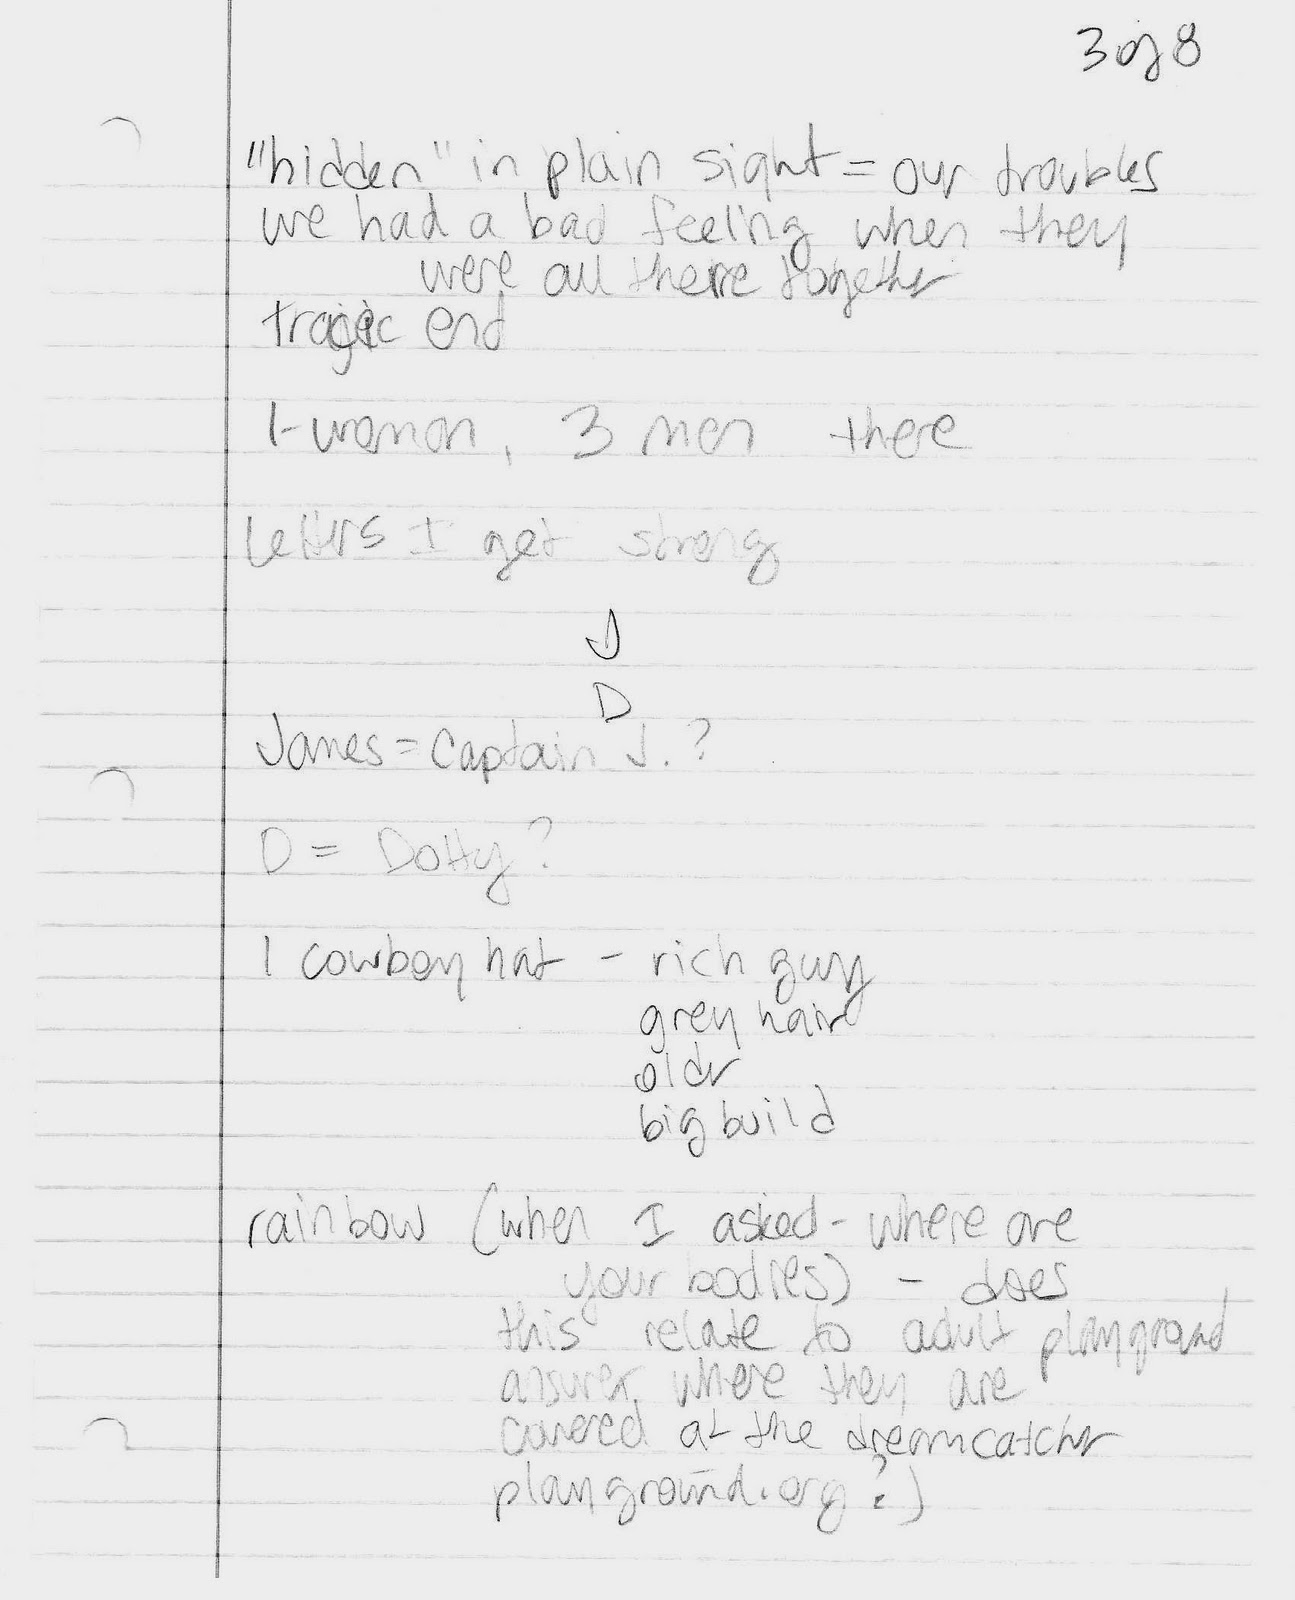 3 of 8
"hidden" in plain sight = our troubles
we had a bad feeling when they
were all there together
tragic end
1-woman, 3 men there
Letters I get strong
J
D
James = Captain J. ?
D = Dotty ?
1 cowboy hat - rich guy
grey hair
older
big build
rainbow (when I asked - where are
your bodies) - does
this relate to adult playground
answer where they are
covered at the dreamcatcher
playground.org ?)